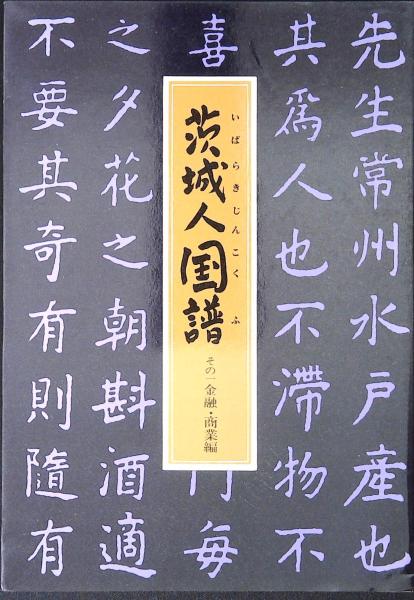 先生常州水戸産也
其爲人也不滯物不
喜
毎
之夕花之朝斟酒適
不要其奇有則隨有
いばらきじんこくふ
茨城人国譜
その一金融・商業編